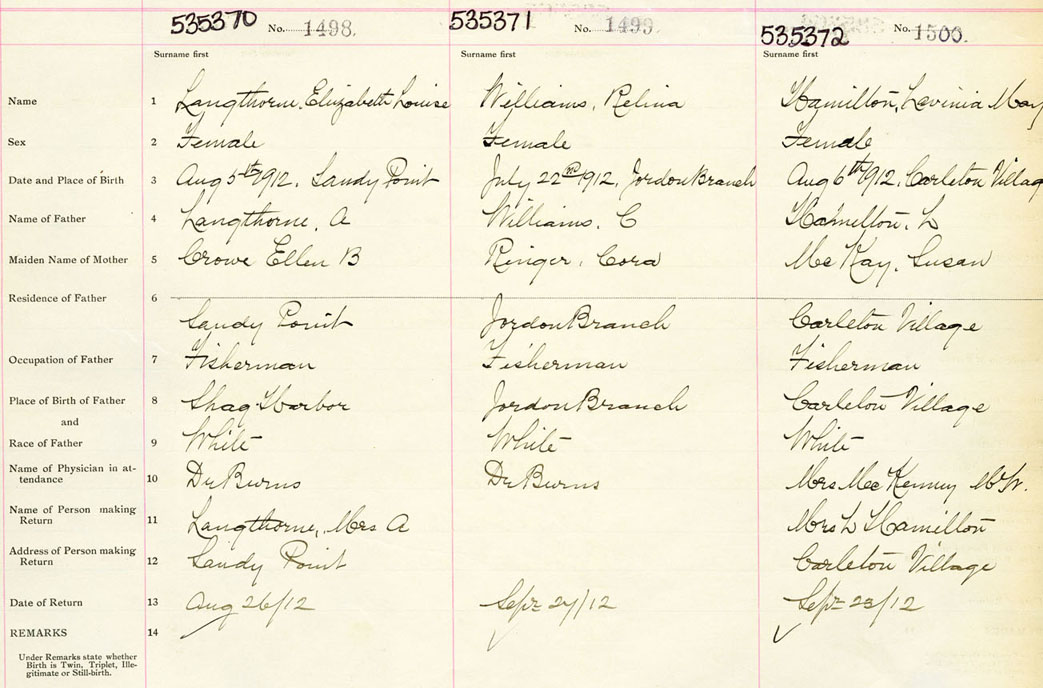 535370 No. 1498. 535371 No. 1499. 535372 No. 1500.
Surname first Surname first Surname first
Name 1 Langthorne, Elizabeth Louise Williams, Relina Hamilton, Lavinia May
Sex 2 Female Female Female
Date and Place of Birth 3 Aug 5th 1912, Sandy Point July 22nd 1912, Jordon Branch Aug 6th 1912, Carleton Villag
Name of Father 4 Langthorne, A Williams, C Hamilton, L
Maiden Name of Mother 5 Crowe Ellen B Ringer, Cora McKay, Susan
Residence of Father 6
Sandy Point Jordon Branch Carleton Village
Occupation of Father 7 Fisherman Fisherman Fisherman
Place of Birth of Father 8 Shag Harbor Jordon Branch Carleton Village
and
Race of Father 9 White White White
Name of Physician in at-
tendance 10 Dr Burns Dr Burns Mrs
Name of Person making
Return 11 Langthorne, Mrs A Mrs L Hamilton
Address of Person making
Return 12 Sandy Point Carleton Village
Date of Return 13 Aug 26/12 Sept 27/12 Sept 23/12
REMARKS 14
Under Remarks state whether
Birth is Twin, Triplet, Ille-
gitimate or Still-birth.